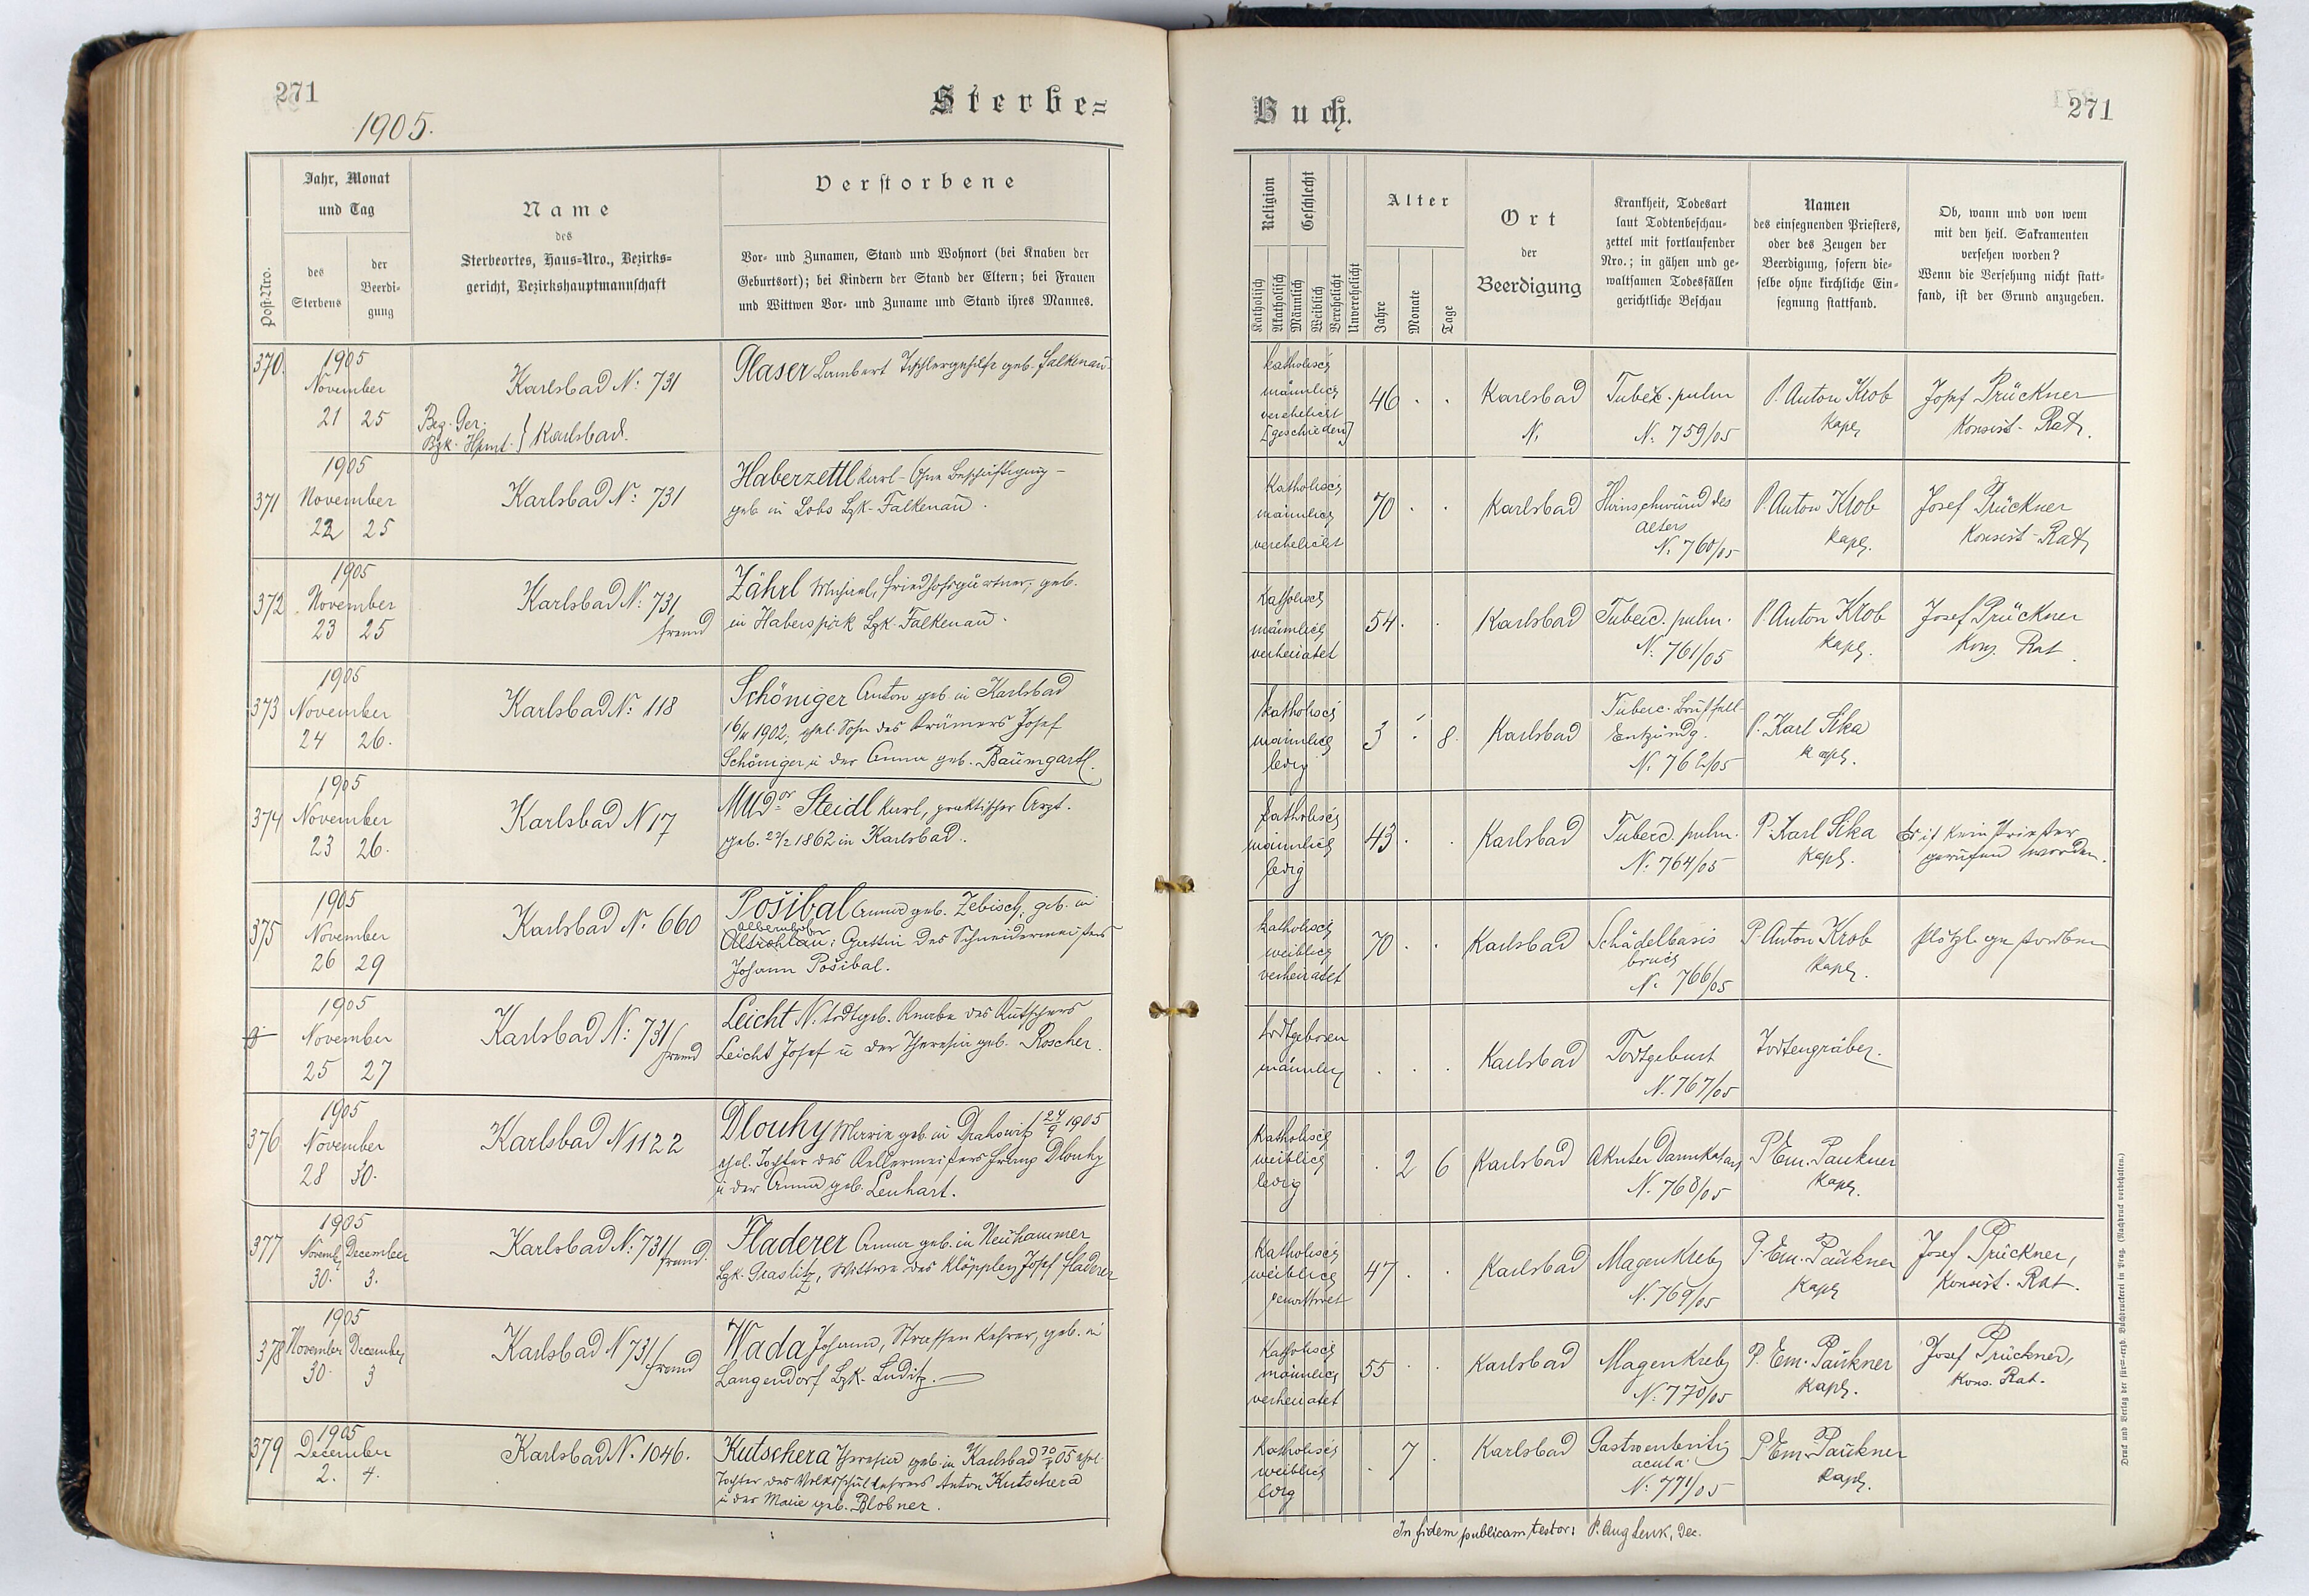 271
1905.
Sterbe=
Post-Nro.
Jahr, Monat
und Tag
des
Sterbens
der
Beerdi-
gung
Name
des
Sterbeortes, Haus-Nro., Bezirks-
gericht, Bezirkshauptmannschaft
Verstorbene
Vor- und Zunamen, Stand und Wohnort (bei Knaben der
Geburtsort); bei Kindern der Stand der Eltern; bei Frauen
und Wittwen Vor- und Zuname und Stand ihres Mannes.
370.
1905
November
21 25
Karlsbad N: 731
Bez. Ger.
Bzk. Hpmt. } Karlsbad.
Glaser Lambert Tischlergehilfe geb. Falkenau.
371
1905
November
22 25
Karlsbad N: 731
Haberzettl Karl - Ohne Beschäftigung -
geb. in Lobs Bzk. Falkenau.
372
1905
November
23 25
Karlsbad N: 731
fremd
Zährl Michael, Friedhofsgärtner, geb.
in Haberspirk Bzk. Falkenau.
373
1905
November
24 26.
Karlsbad N: 118
Schöniger Anton geb in Karlsbad
16/11 1902, ehel. Sohn des Krämers Josef
Schöniger u der Anna geb. Baumgartl.
374
1905
November
23 26.
Karlsbad N 17
MUDor Steidl Karl, praktischer Arzt.
geb. 1862 in Karlsbad.
375
1905
November
26 29
Karlsbad N. 660
Pošibal Anna geb. Zebisch, geb. in
Altrohlau: Gattin des Schneidermeisters
Johann Pošibal.
1905
November
25 27
Karlsbad N: 731/
fremd
Leicht N. todtgeb. Knabe des Kutschers
Leicht Josef u der Theresia geb. Roscher.
376
1905
November
28 30.
Karlsbad N 1122
Dlouhy Marie geb. in Drahowitz 24/9 1905
ehel. Tochter des Kellermeisters Franz Dlouhy
u der Anna geb. Lenhart.
377
1905
Novemb. December
30. 3.
Karlsbad N: 731/
fremd.
Fladerer Anna geb. in Neuhammer
Bzk. Graslitz, Wittwe des Klöpplers Josef Fladerer
378
1905
November December
30. 3
Karlsbad N 731/
fremd
Wada Johann, Strassenkehrer, geb. in
Langendorf Bzk. Luditz.
379
1905
December
2. 4.
Karlsbad N. 1046.
Kutschera Theresia geb. in Karlsbad 05 ehel.
Tochter des Volksschullehrers Anton Kutschera
u der Marie geb. Blobner.
Buch.
271
Religion
Geschlecht
Katholisch
Akatholisch
Männlich
Weiblich
Verehelicht
Unverehelicht
Alter
Jahre
Monate
Tage
Ort
der
Beerdigung
Krankheit, Todesart
laut Todtenbeschau-
zettel mit fortlaufender
Nro.; in gähen und ge-
waltsamen Todesfällen
gerichtliche Beschau
Namen
des einsegnenden Priesters,
oder des Zeugen der
Beerdigung, sofern die-
selbe ohne kirchliche Ein-
segnung stattfand.
Ob, wann und von wem
mit den heil. Sakramenten
versehen worden?
Wenn die Versehung nicht statt-
fand, ist der Grund anzugeben.
katholisch
männlich
verehelicht
[geschieden]
46 . .
Karlsbad
N.
Tuberc. pulm
N. 759/05
P. Anton Krob
Kapl.
Josef Prückner
Konsist-Rath.
Katholisch
männlich
verehelicht
70 . .
Karlsbad
Hirnschwund des
Alters
N. 760/05
P. Anton Krob
Kapl.
Josef Prückner
Konsist-Rath
Katholisch
männlich
verheiratet
54. .
Karlsbad
Tuberc. pulm.
N. 761/05
P. Anton Krob
Kapl.
Josef Prückner
Kons. Rat.
Katholisch
männlich
ledig
3 . 8.
Karlsbad
Tuberc. Brustfell
Entzündg.
N. 762/05
P. Karl Sika
Kapl.
Katholisch
männlich
ledig
43 . .
Karlsbad
Tuberc. pulm.
N. 764/05
P. Karl Sika
Kapl.
Es ist kein Priester
gerufen worden.
Katholisch
weiblich
verheiratet
70 . .
Karlsbad
Schädelbasis
bruch
N. 766/05
P. Anton Krob
Kapl.
plötzl. gestorben
todtgeboren
männlich
. . .
Karlsbad
Todtgeburt
N. 767/05
Todtengräber.
Katholisch
weiblich
ledig
. 2 6
Karlsbad
Akuter Darmkatarh
N. 768/05
P Em. Paukner
Kapl.
Katholisch
weiblich
verwittwet
47 . .
Karlsbad
Magenkrebs
N. 769/05
P. Em. Paukner
Kapl
Josef Prückner,
Konsist. Rat.
Katholisch
männlich
verheiratet
55 . .
Karlsbad
Magenkrebs
N. 770/05
P. Em. Paukner
Kapl.
Josef Prückner,
Kons. Rat.
Katholisch
weiblich
ledig
. 7 .
Karlsbad
Gastroenteritis
acuta
N. 771/05
P Em. Paukner
Kapl.
In fidem publicam testor: P. Aug Lenk, Dec.
Druck und Verlag der fürst-erzb. Buchdruckerei in Prag. (Nachdruck vorbehalten.)